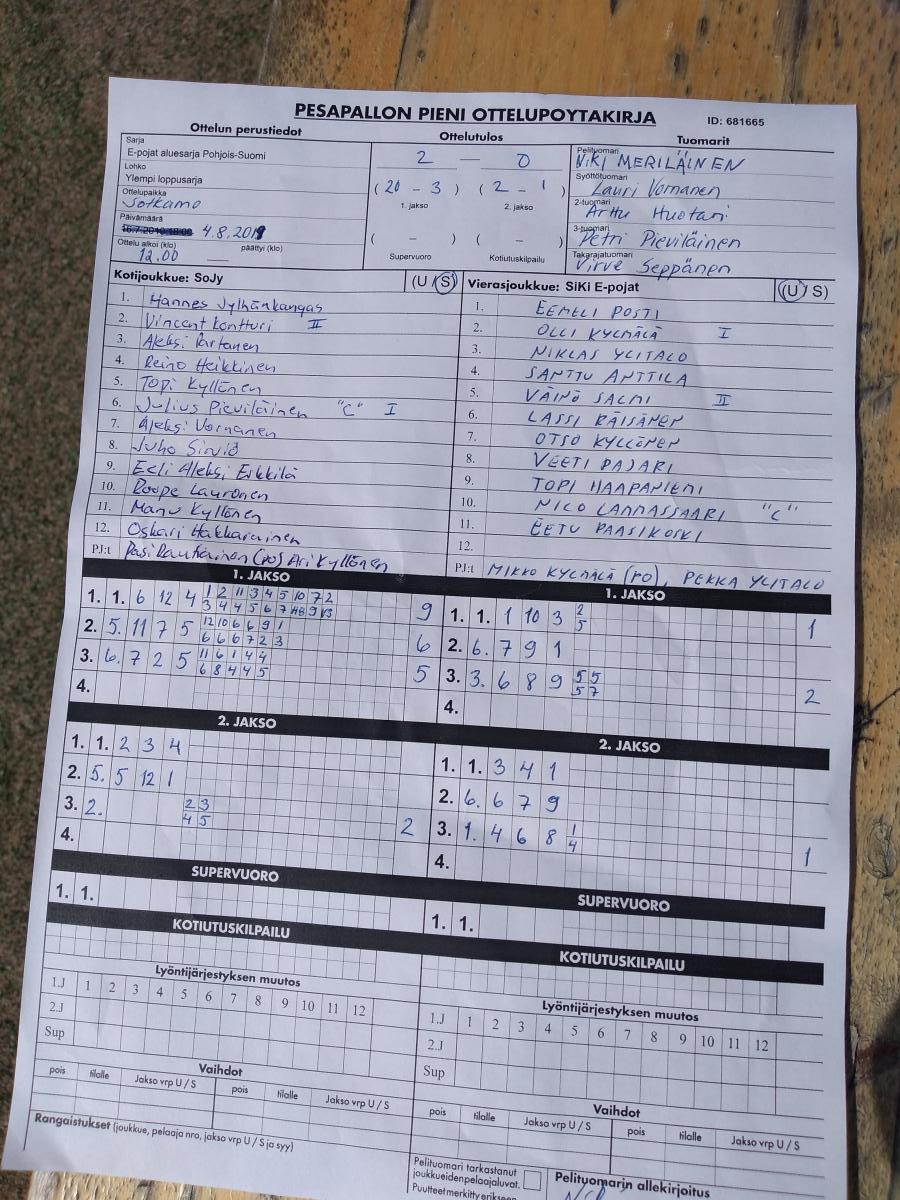 PESAPALLON PIENI OTTELUPOYTAKIRJA
ID: 681665
Ottelun perustiedot
Sarja
E-pojat aluesarja Pohjois-Suomi
Lohko
Ylempi loppusarja
Ottelupaikka
Sotkamo
Päivämäärä
4.8.2019
Ottelu alkoi (klo) päättyi (klo)
12.00
Ottelutulos
2 — 0
( 20 - 3 ) ( 2 - 1 )
1. jakso 2. jakso
( - ) ( - )
Supervuoro Kotiutuskilpailu
Tuomarit
Pelituomari
NiKi MERILÄINEN
Syöttötuomari
Lauri Vornanen
2-tuomari
Arttu Huotari
3-tuomari
Petri Pieviläinen
Takarajatuomari
Virve Seppänen
Kotijoukkue: SoJy (U / S)
1. Hannes Jylhänkangas
2. Vincent Kontturi II
3. Aleksi Partanen
4. Reino Heikkinen
5. Topi Kyllönen
6. Julius Pieviläinen "C" I
7. Aleksi Vornanen
8. Juho Sirviö
9. Eeli Aleksi Erkkilä
10. Roope Lauronen
11. Manu Kyllönen
12. Oskari Hakkarainen
PJ:t Pasi Rautiainen (PO) Ari Kyllönen
Vierasjoukkue: SiKi E-pojat (U / S)
1. EEMELI POSTI
2. OLLI KYLMÄLÄ I
3. NIKLAS YLITALO
4. SANTTU ANTTILA
5. VÄINÖ SALMI II
6. LASSI RÄISÄNEN
7. OTSO KYLLÖNEN
8. VEETI PAJARI
9. TOPI HAAPANIEMI
10. NICO LANNASSAARI "C"
11. EETU PAASIKOSKI
12.
PJ:t MIKKO KYLMÄLÄ (PO), PEKKA YLITALO
1. JAKSO
1. 1. 6 12 4 1 2 11 3 4 5 10 7 2 9
3 4 4 5 6 7
2. 5. 11 7 5 12 10 6 6 9 1 6
6 6 6 7 2 3
3. 6. 7 2 5 11 6 1 4 4 5
6 8 4 4 5
4.
1. JAKSO
1. 1. 1 10 3 2 1
5
2. 6. 7 9 1
3. 3. 6 8 9 5 5 2
5 7
4.
2. JAKSO
1. 1. 2 3 4
2. 5. 5 12 1
3. 2. 2 3 2
4 5
4.
2. JAKSO
1. 1. 3 4 1
2. 6. 6 7 9
3. 1. 4 6 8 1 1
4
4.
SUPERVUORO
1. 1.
SUPERVUORO
1. 1.
KOTIUTUSKILPAILU
KOTIUTUSKILPAILU
Lyöntijärjestyksen muutos
1.J 1 2 3 4 5 6 7 8 9 10 11 12
2.J
Sup
Lyöntijärjestyksen muutos
1.J 1 2 3 4 5 6 7 8 9 10 11 12
2.J
Sup
Vaihdot
pois tilalle Jakso vrp U / S pois tilalle Jakso vrp U / S
Vaihdot
pois tilalle Jakso vrp U / S pois tilalle Jakso vrp U / S
Rangaistukset (joukkue, pelaaja nro, jakso vrp U / S ja syy)
Pelituomari tarkastanut
joukkueidenpelaajaluvat.
Puutteet merkitty erikseen
Pelituomarin allekirjoitus